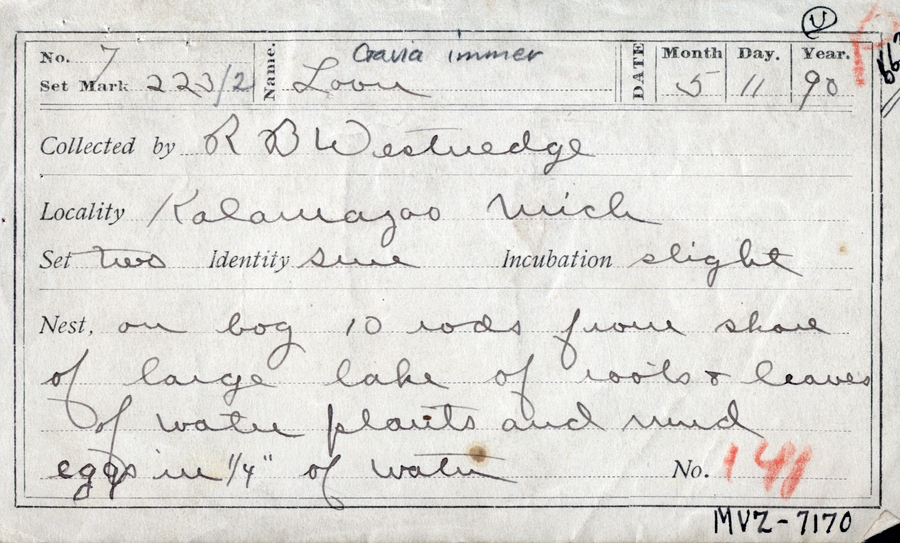 U
No. 7 Name. Gavia immer DATE Month Day. Year.
Set Mark 223/2 Loon 5 11 90
Collected by R B Westnedge
Locality Kalamazoo Mich
Set two Identity sure Incubation slight
Nest, on bog 10 rods from shore
of large lake of roots & leaves
of water plants and mud
eggs in 1/4" of water No.
MVZ-7170